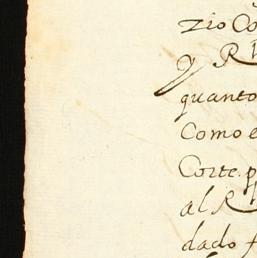 zio Co
y R
quanto
Como e
Corte. p
al R
dado f